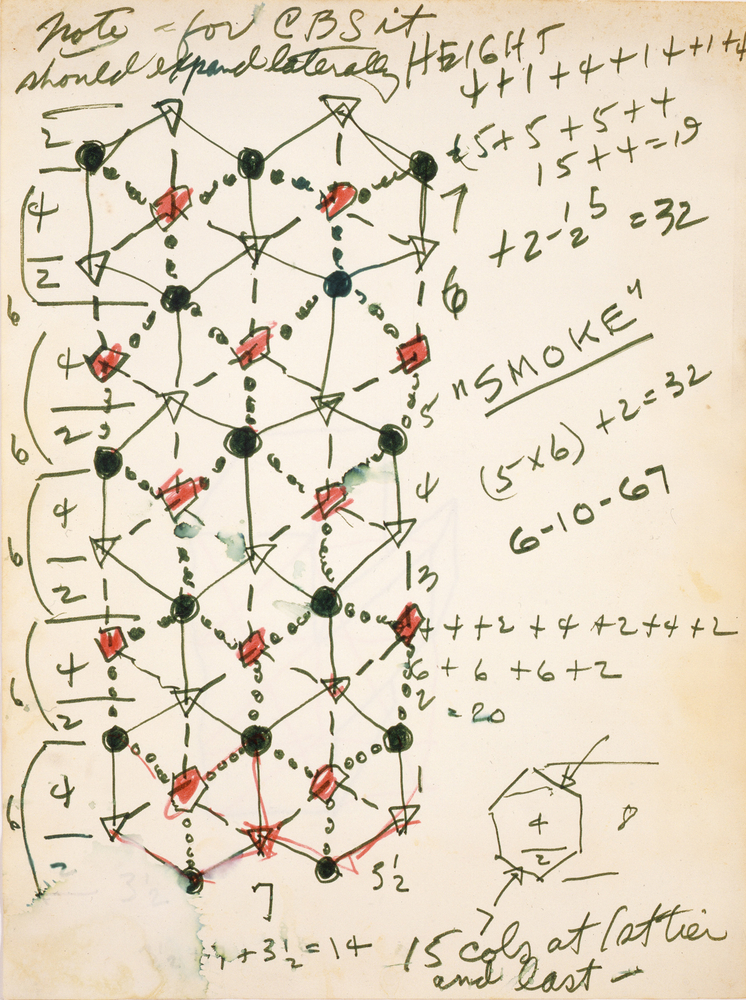 Note - for CBS it
should expand laterally HEIGHT
4+1+4+1+4+1+4
5+5+5+4
15+4=19
2
4
2
7
+2-1/2 5 =32
6
6
"SMOKE"
4
2
5
6
(5×6)+2=32
4
4
2
6
6-10-67
3
4+2+4+2+4+2
4
2
6
6+6+6+2
2
=20
4
2
6
1
4
2
8
3 1/2
7
+3 1/2=14
15 cols at 1st tier
and last -